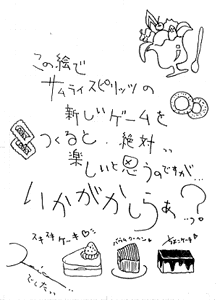 この絵で
サムライスピリッツの
新しいゲームを
つくると、絶対、、
楽しいと思うのですが…
いかがかしらぁ…?
スキスキケーキ♡
バウムクーヘン♡
チョコケーキ♡
でした…